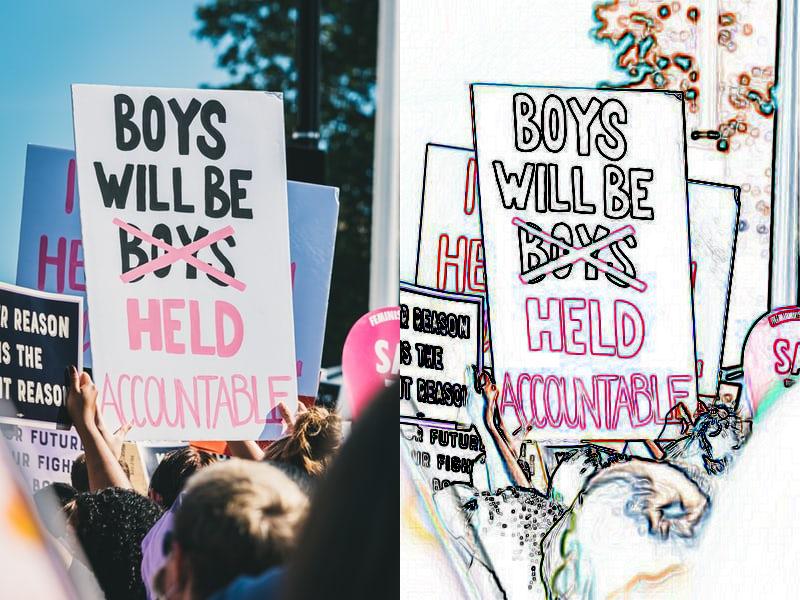 BOYS
WILL BE
BOYS
HELD
ACCOUNTABLE
HE
R REASON
IS THE
NT REASON
R FUTUR
UR FIGH
FEMINIS
SA
BOYS
WILL BE
BOYS
HELD
ACCOUNTABLE
HE
R REASON
IS THE
NT REASON
R FUTUR
UR FIGH
FEMINIS
SA